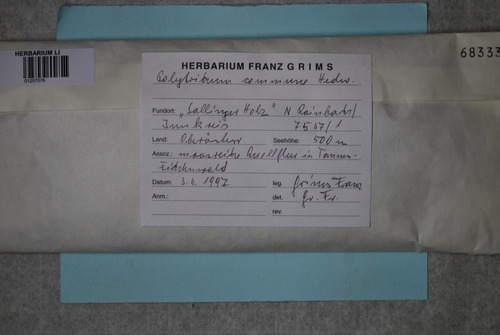 HERBARIUM LI
68333
HERBARIUM FRANZ GRIMS
Polytrichum commune Hedw.
Fundort: „Sallinger Holz" N Rainbach/
Innkreis 7547/1
Land: Oberösterr. Seehöhe: 500 m
Assoz.: moosreiche Quellflur in Tannen-
Fichtenwald
Datum: 3.4.1997 leg. Grims Franz
Anm.: det. Gr. Fr.
rev.